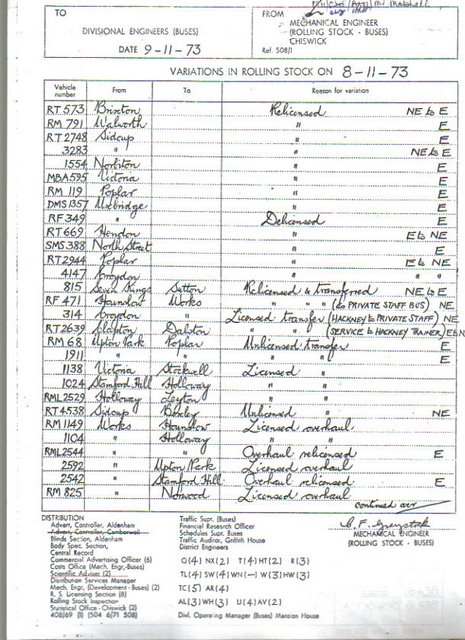 TO
FROM
MECHANICAL ENGINEER
(ROLLING STOCK - BUSES)
CHISWICK
DIVISIONAL ENGINEERS (BUSES)
DATE 9-11-73
Ref. 508/1
VARIATIONS IN ROLLING STOCK ON 8-11-73
Vehicle number From To Reason for variation
RT 573 Brixton Relicensed NE to E
RM 791 Walworth " E
RT 2748 Sidcup " E
3283 " " NE to E
1554 Norbiton " E
MBA 595 Victoria " E
RM 119 Poplar " E
DMS 1357 Uxbridge " E
RF 349 " Delicensed E
RT 669 Hendon " E to NE
SMS 388 North Street " E
RT 2944 Poplar " E to NE
4147 Croydon " " "
815 Seven Kings Sutton Relicensed & transferred NE to E
RF 471 Hounslow Works " " (to PRIVATE STAFF BUS) NE
314 Croydon " Licensed transfer (HACKNEY to PRIVATE STAFF) NE
RT 2639 Clapton Dalston " " (SERVICE to HACKNEY TRAINER)
RM 68 Upton Park Poplar Unlicensed transfer E
1911 " " " " E
1138 Victoria Stockwell Licensed "
1024 Stamford Hill Holloway " "
RML 2529 Holloway Leyton " "
RT 4538 Sidcup Bexley Unlicensed " NE
RM 1149 Works Hounslow Licensed overhaul
1104 " Holloway "
RML 2544 " " Overhaul relicensed E
2592 " Upton Park Licensed overhaul
2542 " Stamford Hill Overhaul relicensed E
RM 825 " Norwood Licensed overhaul
continued over
DISTRIBUTION
Advert. Controller, Aldenham
Advert. Controller, Camberwell
Blinds Section, Aldenham
Body Spec. Section,
Central Record
Commercial Advertising Officer (6)
Costs Office (Mech. Engr-Buses)
Scientific Adviser (2)
Distribution Services Manager
Mech. Engr. (Development - Buses) (2)
R. S. Licensing Section (8)
Rolling Stock Inspection
Statistical Office - Chiswick (2)
408/69 (1) (504 6/71 508)
Traffic Supt. (Buses)
Financial Research Officer
Schedules Supt. Buses
Traffic Auditor, Griffith House
District Engineers
Q(4) NX(2) T(4) HT(2) R(3)
TL(4) SW(4) WN(-) W(3) HW(3)
TC(5) AR(4)
AL(3) WH(3) U(4) AV(2)
Divl. Operating Manager (Buses) Mansion House
MECHANICAL ENGINEER
(ROLLING STOCK - BUSES)